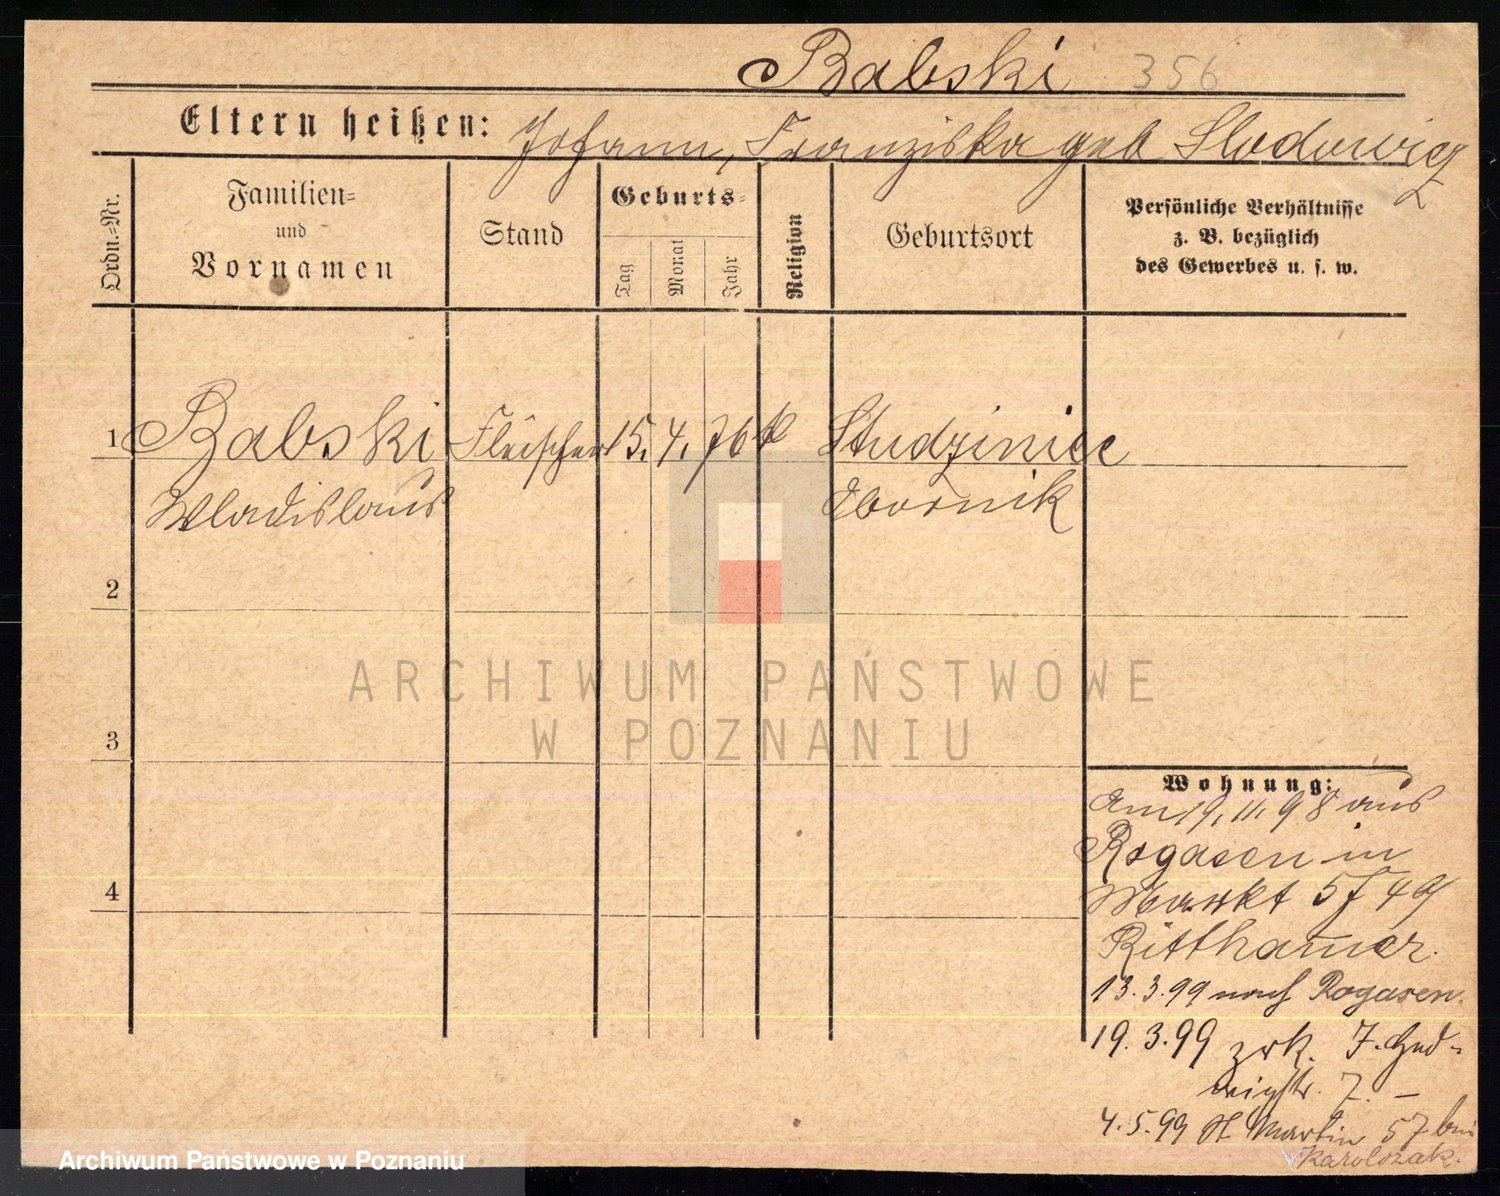 Babski 356
Eltern heißen: Johann, Franziska geb Slodowicz
Ordn.=Nr.
Familien=
und
Vornamen
Stand
Geburts=
Tag
Monat
Jahr
Religion
Geburtsort
Persönliche Verhältnisse
z. B. bezüglich
des Gewerbes u. s. w.
1 Babski Fleischer 15. 4. 76 k Studziniec
Wladislaus Obornik
2
3
4
Wohnung:
am 19. 11. 98 aus
Rogasen in
Markt 57 49
Ritthamer.
13. 3. 99 nach Rogasen.
19. 3. 99 zrk.
7. –
4. 5. 99 St Martin 57 bei
Karolczak.
ARCHIWUM PAŃSTWOWE
W POZNANIU
Archiwum Państwowe w Poznaniu